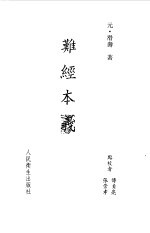 元·滑壽 著
難經本義
點校者
傅貞亮
張崇孝
人民衛生出版社